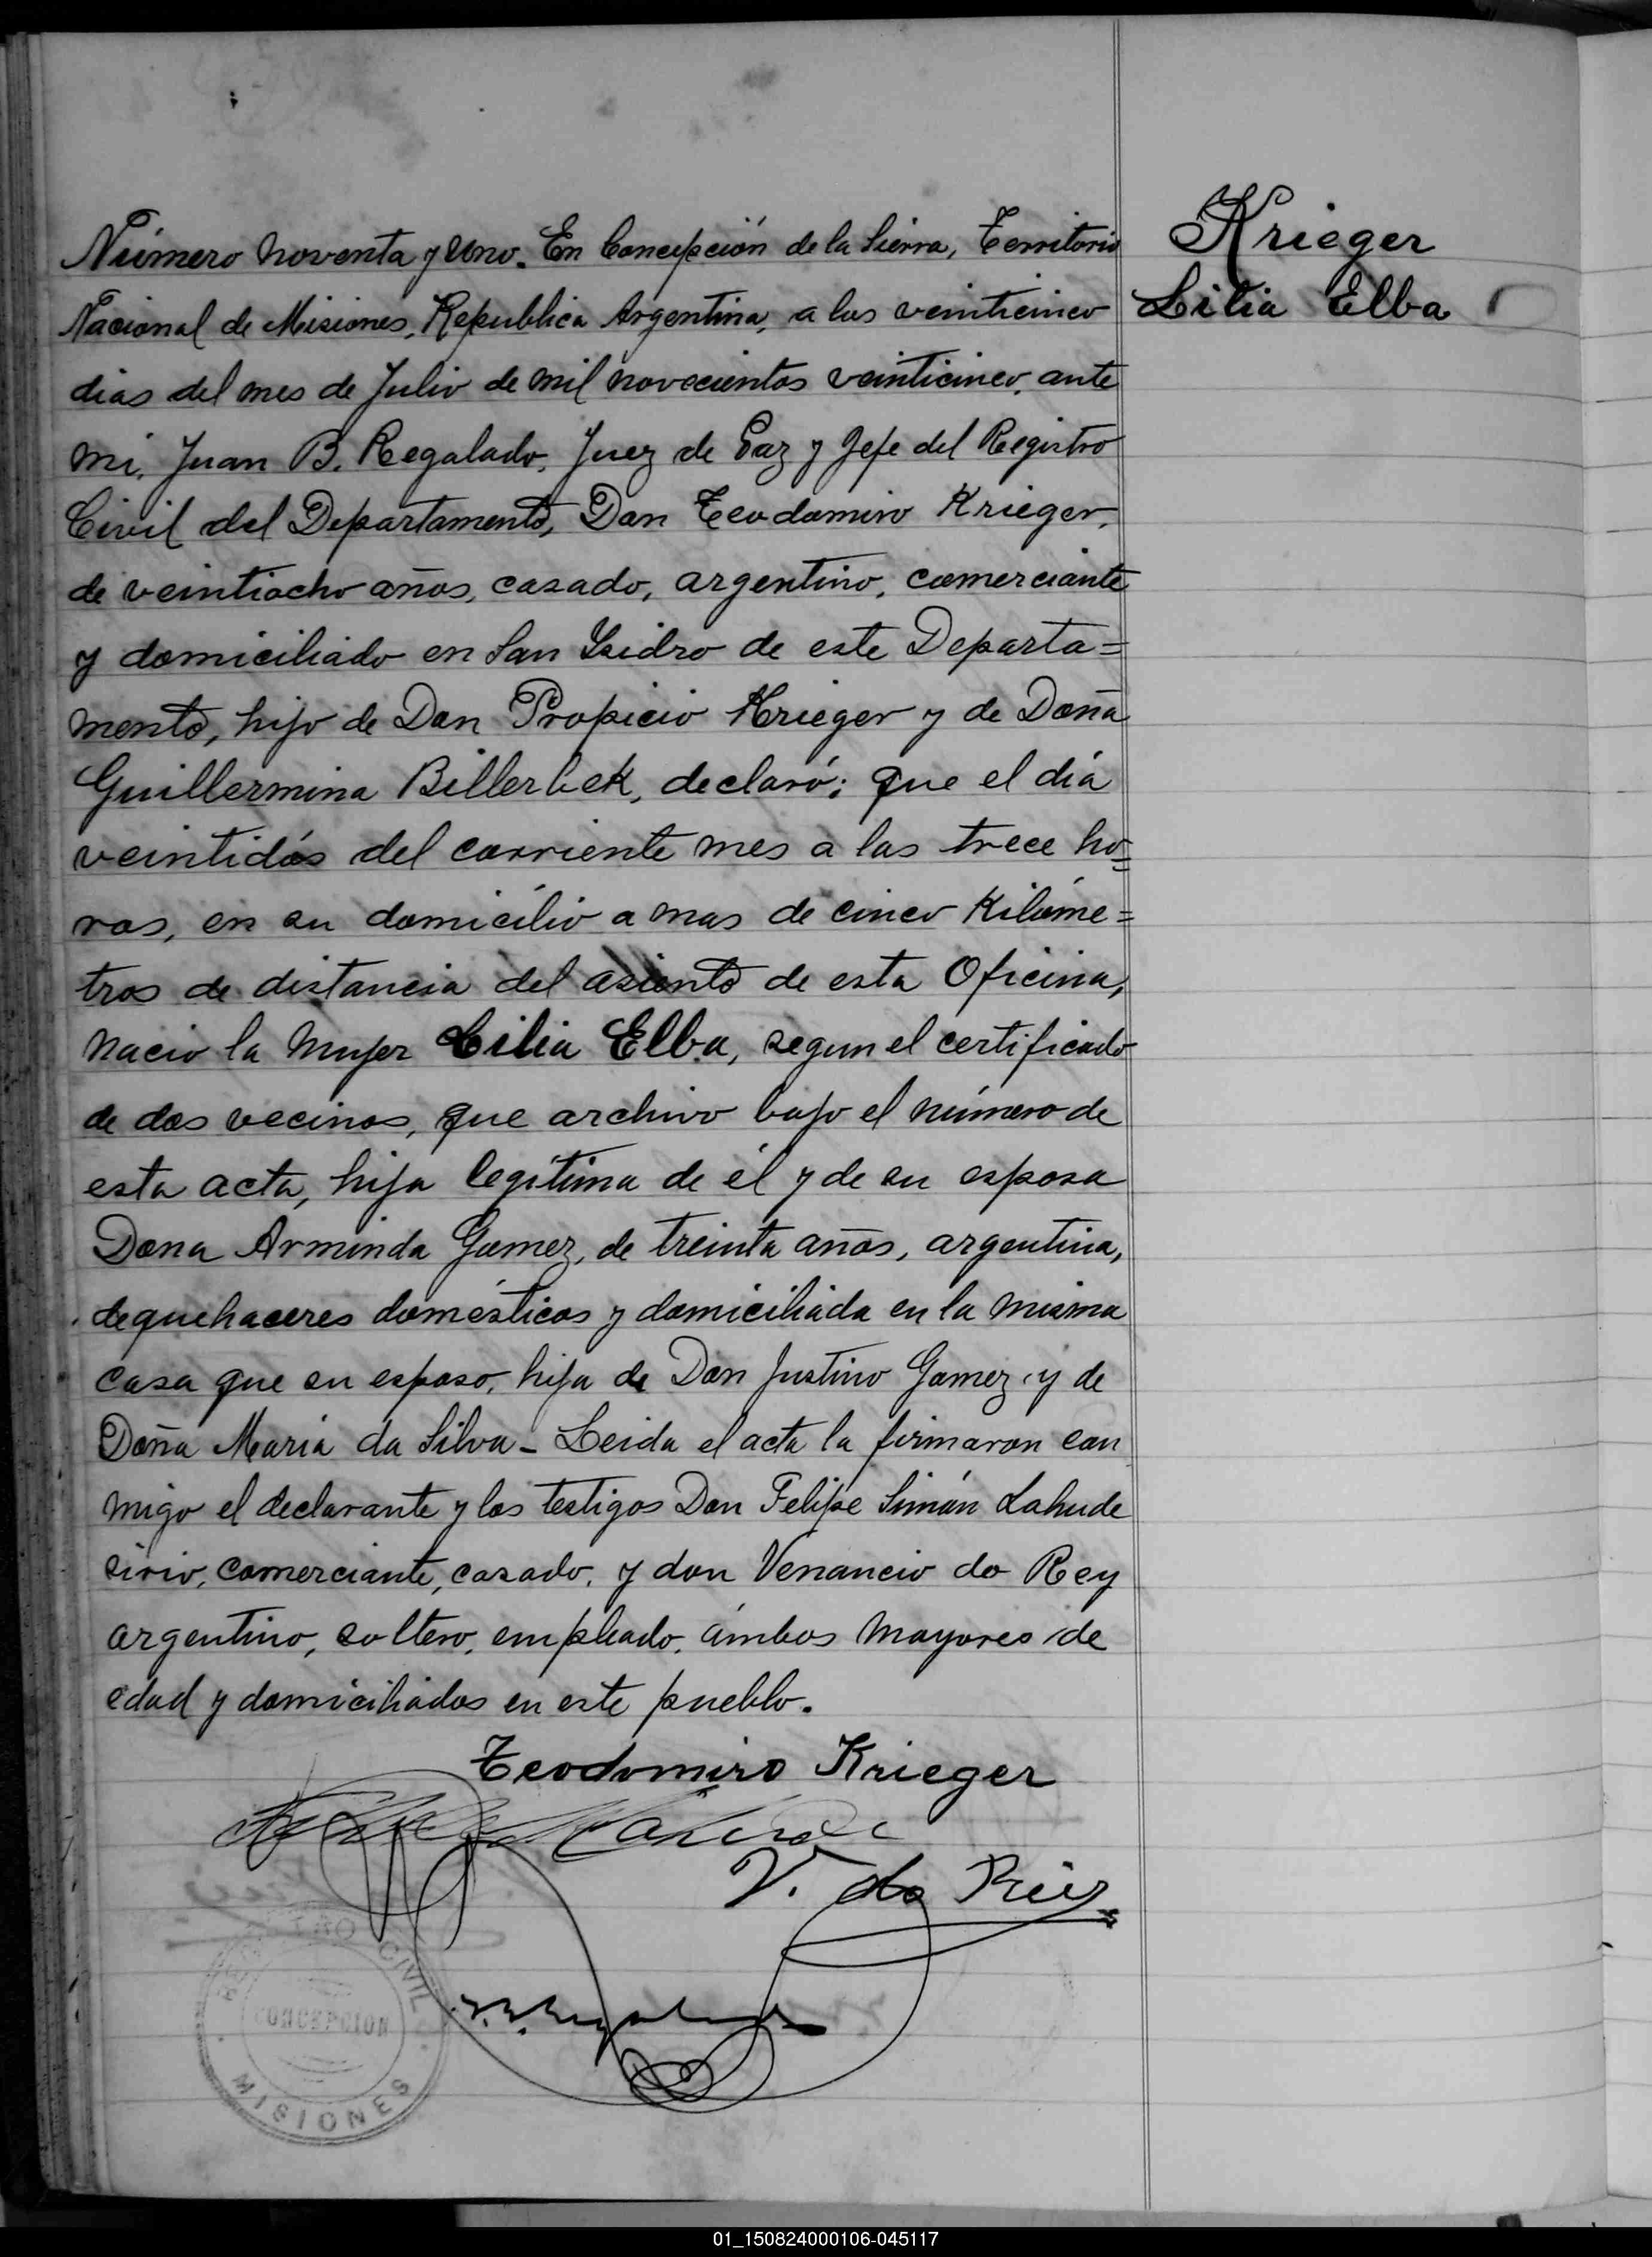 Krieger
Lilia Elba
Número noventa y uno. En Concepción de la Sierra, Territorio
Nacional de Misiones, Republica Argentina, a los veinticinco
dias del mes de Julio de mil novecientos veinticinco, ante
mi, Juan B. Regalado, Juez de Paz y Jefe del Registro
Civil del Departamento, Don Teodomiro Krieger,
de veintiocho años, casado, argentino, comerciante
y domiciliado en San Isidro de este Departa=
mento, hijo de Don Propicio Krieger y de Doña
Guillermina Billerbek, declaró; que el dia
veintidós del corriente mes a las trece ho=
ras, en su domicilio a mas de cinco Kilóme=
tros de distancia del asiento de esta Oficina,
nacio la mujer Lilia Elba, segun el certificado
de dos vecinos, que archivo bajo el número de
esta acta, hija legítima de él y de su esposa
Dona Arminda Gomez, de treinta años, argentina,
de quehaceres domésticos y domiciliada en la misma
casa que su esposo, hija de Don Justino Gomez y de
Doña Maria da Silva - Leida el acta la firmaron con
migo el declarante y los testigos Don Felipe Simón Lahude
sirio, comerciante, casado, y don Venancio do Rey
argentino, soltero, empleado, ámbos mayores de
edad y domiciliados en este pueblo.
Teodomiro Krieger
V. do Reis
REGISTRO CIVIL
CONCEPCION
MISIONES
01_150824000106-045117